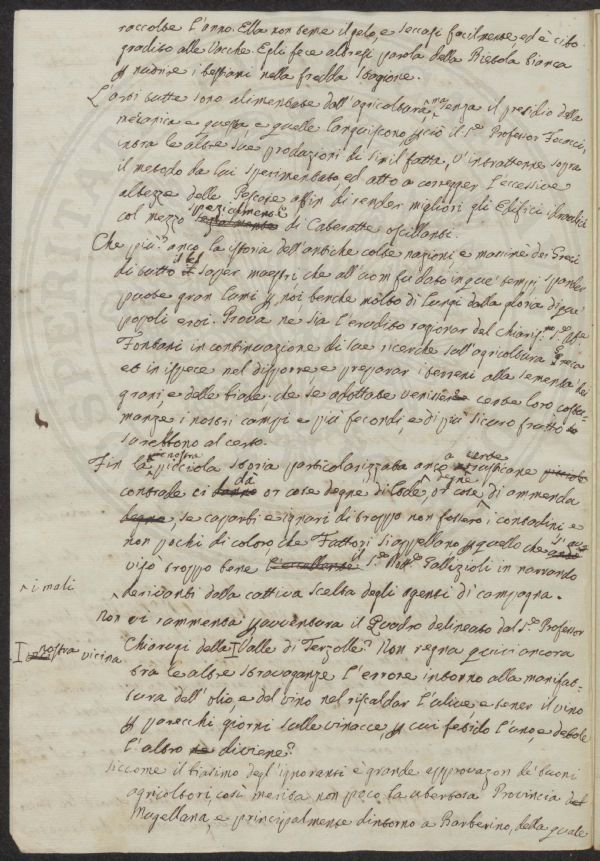 raccolse l'anno. Ella non teme il gelo, e seccasi facilmente, ed è cibo
gradito alle Vacche. Egli fece altresì parola della Bietola bianca
p nudrire i bestiami nella fredda stagione.
L'arti tutte sono alimentate dall'agricoltura, ma senza il presidio della
mecanica e questa e quelle languiscono, p ciò il Sr. Professor Focacci,
intra le altre sue produzioni di simil fatta, v'intrattenne sopra
il metodo da lui sperimentato ed atto a correpger l'eccessive
altezze delle Pescaje affin di render migliori gli Edifici idraulici
col mezzo di Cateratte oscillanti.
Che più? anco la storia dell'antiche colte nazioni e massime dei Greci
di tutto il saper maestri che all'uom fu dato in que' tempi spander
puote gran lumi p noi benche molto di lungi dalla gloria di que
popoli eroi. Prova ne sia l'erudito ragionar del Chiariss.mo Sr.
Fontani in continuazione di sue ricerche sull'agricoltura Greca
ed in ispece nel disporre e preparar i terreni alla sementa dei
grani, e delle biade che se adottate venissero certe loro costu-
manze i nostri campi e più fecondi, e di più sicuro frutto
sarebbono al certo.
Fin la nostra picciola storia particolarizzata anco a certe rusticane
contrade ci dà or cose degne di lode, or cose degne di ammenda
se caparbi e ignari di troppo non fossero i contadini e
non pochi di coloro che Fattori si appellano p quello che
vișo troppo bene il Sr. Dott. Gallizioli in narrando
i mali
derivanti dalla cattiva scelta degli agenti di campagna.
Non vi rammenta p avventura il Quadro delineato dal Sr. Professor
nostra vicina
Chiarugi della Valle di Terzolle? Non regna quivi ancora
tra le altre stravaganze l'errore intorno alla manifat-
tura dell'olio, e del vino nel riscaldar l'ulive e tener il vino
p parecchi giorni sulle vinacce p cui fetido l'uno, e debole
l'altro ne diviene?
Siccome il biasimo degl'ignoranti è grande approvazion de' buoni
agricoltori, così merita non poco la ubertosa Provincia del
Mugellana, e principalmente dintorno a Barberino, della quale